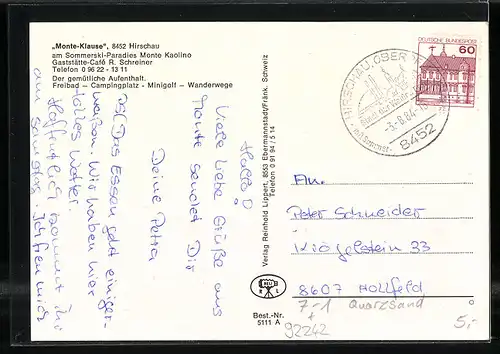 „Monte-Klause", 8452 Hirschau
am Sommerski-Paradies Monte Kaolino
Gaststätte-Café R. Schreiner
Telefon 0 96 22 - 13 11
Der gemütliche Aufenthalt.
Freibad – Campingplatz - Minigolf – Wanderwege
Hallo
Viele liebe Grüße aus
Monte sendet Dir
Deine Petra
PS: Das Essen geht einiger-
maßen. Wir haben hier
tolles Wetter.
Hoffentlich kommt ihr
am Samstag. Ich freu mich
Verlag Reinhold Lippert, 8553 Ebermannstadt/Fränk. Schweiz
Telefon 0 91 94 / 5 14
R L
Best.-Nr.
5111 A
HIRSCHAU, OBERPF
-8.84-
8452
DEUTSCHE BUNDESPOST
60
An.
Peter Schneider
33
8607 Hollfeld
7-1 Quarzsand
92242
5,-